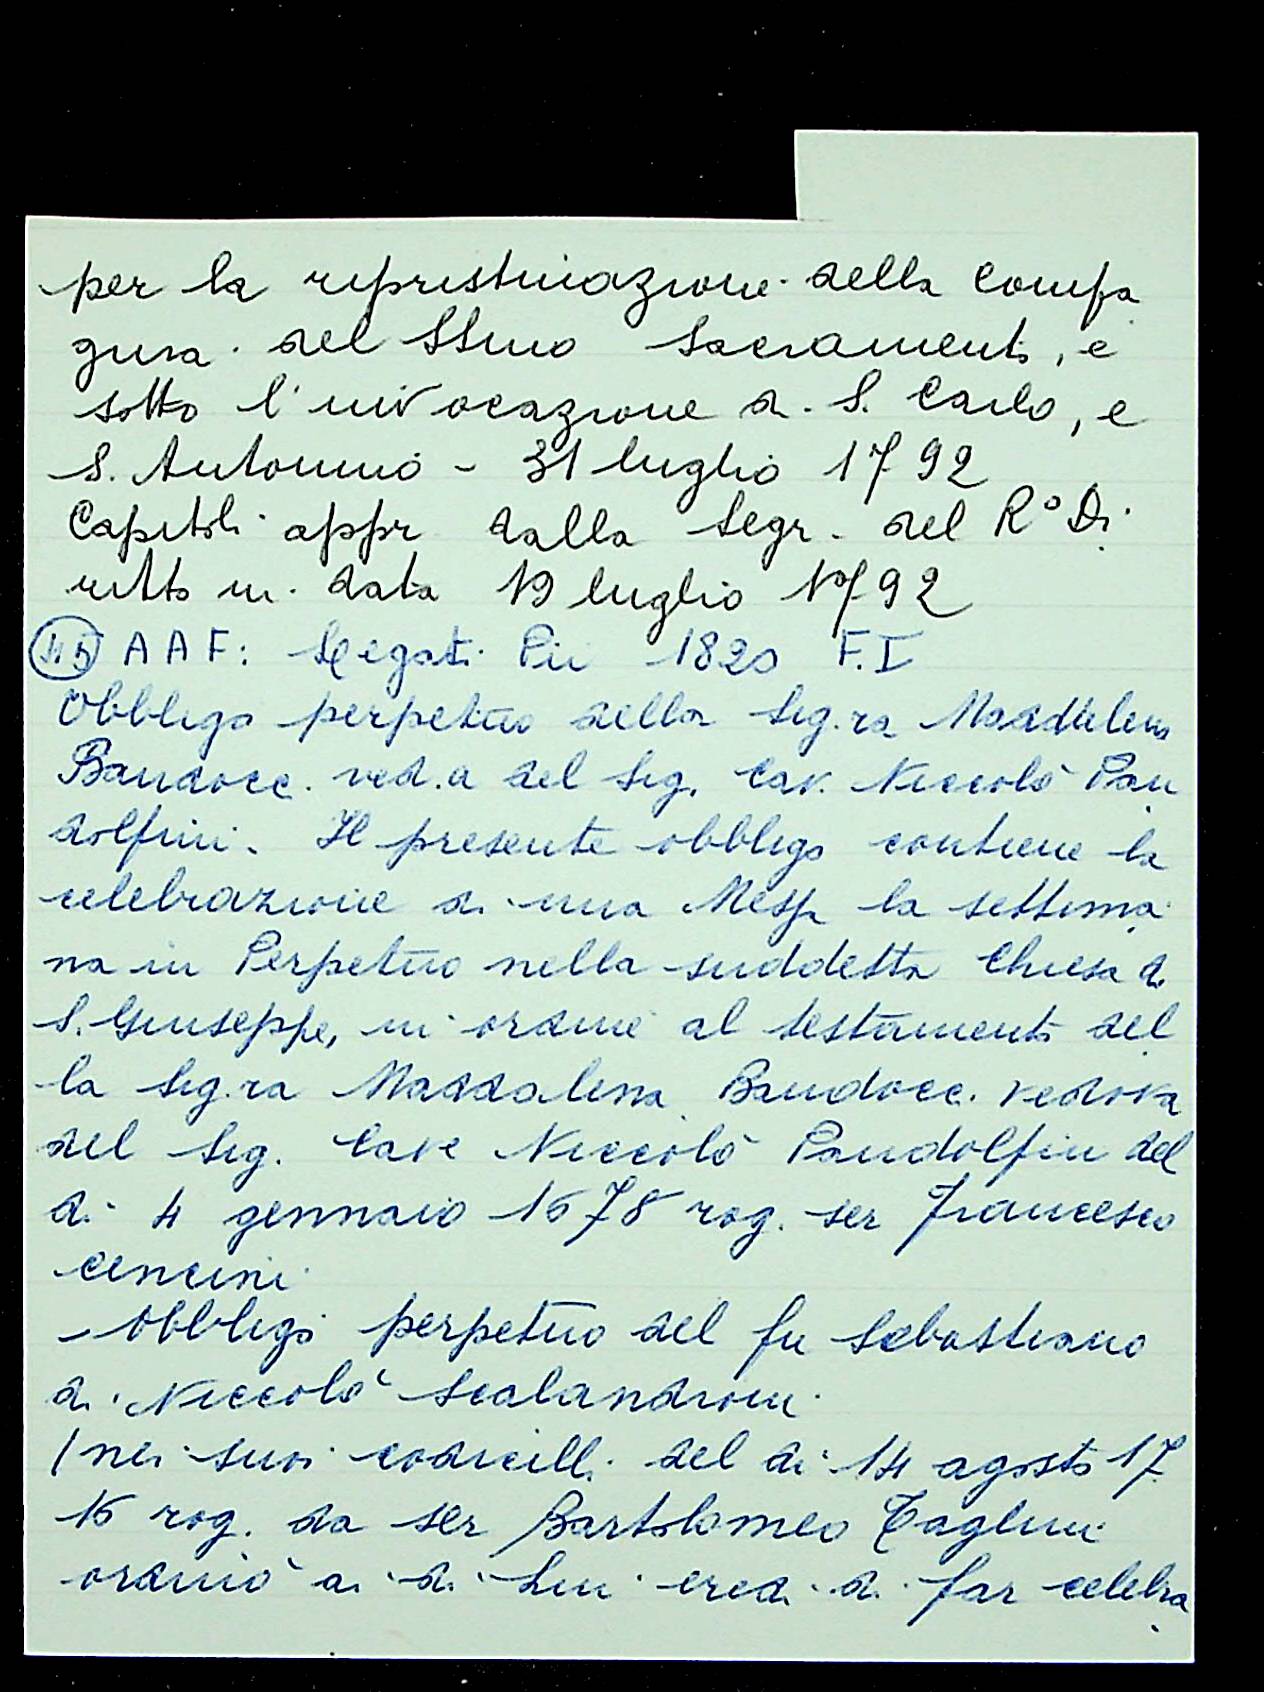 per la ripristinazione della Compa
gnia del SSmo Sacramento, e
sotto l'invocazione di S. Carlo, e
S. Antonino - 31 luglio 1792
Capitoli appr. dalla Segr. del R° Di
ritto in data 19 luglio 1792
AAF: Legati Pii 1820 F.I
Obbligo perpetuo della Sig.ra Maddalena
Bandocc. ved.a del Sig. Cav. Niccolò Pan
dolfini. Il presente obbligo contiene la
celebrazione di una Messa la settima
na in Perpetuo nella suddetta Chiesa di
S. Giuseppe, in ordine al testamento del
la Sig.ra Maddalena Bandocc. vedova
del Sig. Cave Niccolò Pandolfini del
dì 4 gennaio 1678 rog. ser Francesco
Cencini
- Obbligo perpetuo del fu Sebastiano
di Niccolò Scalandroni
(nei suoi codicilli del dì 14 agosto 17
16 rog. da ser Bartolomeo Taglini
ordinò ai di Lui eredi di far celebra